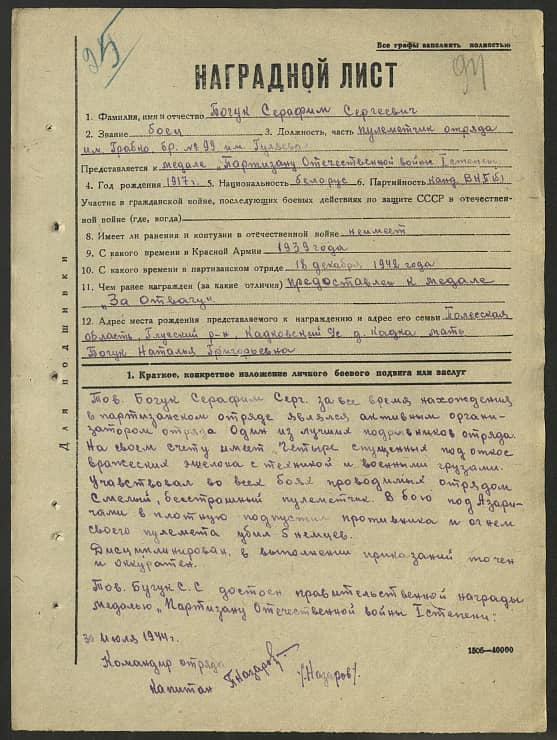 95
Все графы заполнить полностью
94
НАГРАДНОЙ ЛИСТ
1. Фамилия, имя и отчество Богук Серафим Сергеевич
2. Звание боец 3. Должность, часть пулеметчик отряда
им. Грабко, бр. № 99 им. Гуляева
Представляется к медале „Партизану Отечественной войны I степени
4. Год рождения 1917 г. 5. Национальность белорус 6. Партийность канд. ВКП(б)
Участие в гражданской войне, последующих боевых действиях по защите СССР в отечествен-
ной войне (где, когда)
8. Имеет ли ранения и контузии в отечественной войне неимеет
9. С какого времени в Красной Армии 1939 года
10. С какого времени в партизанском отряде 18 декабря 1942 года
11. Чем ранее награжден (за какие отличия) предоставлен к медале
„За Отвагу"
12. Адрес места рождения представляемого к награждению и адрес его семьи Полесская
область, Глусский р-н, Кадковский с/с д. Кадка мать
Богук Наталья Григорьевна
Для подшивки
1. Краткое, конкретное изложение личного боевого подвига или заслуг
Тов. Богук Серафим Серг. за все время нахождения
в партизанском отряде являлся активным органи-
затором отряда. Один из лучших подрывников отряда.
На своем счету имеет „Четыре спущенных под откос
вражеских эшелона с техникой и военными грузами.
Учавствовал во всех боях проводимых отрядом
Смелый, бесстрашный пулеметчик. В бою под Азари-
чами в плотную подпустил противника и огнем
своего пулемета убил 5 немцев.
Дисциплинирован, в выполнении приказаний точен
и аккуратен.
Тов. Бугук С.С достоен правительственной награды
медалью „Партизану Отечественной войны I степени"
30 июля 1944 г.
1505—40000
Командир отряда
капитан Назаров /Назаров/.